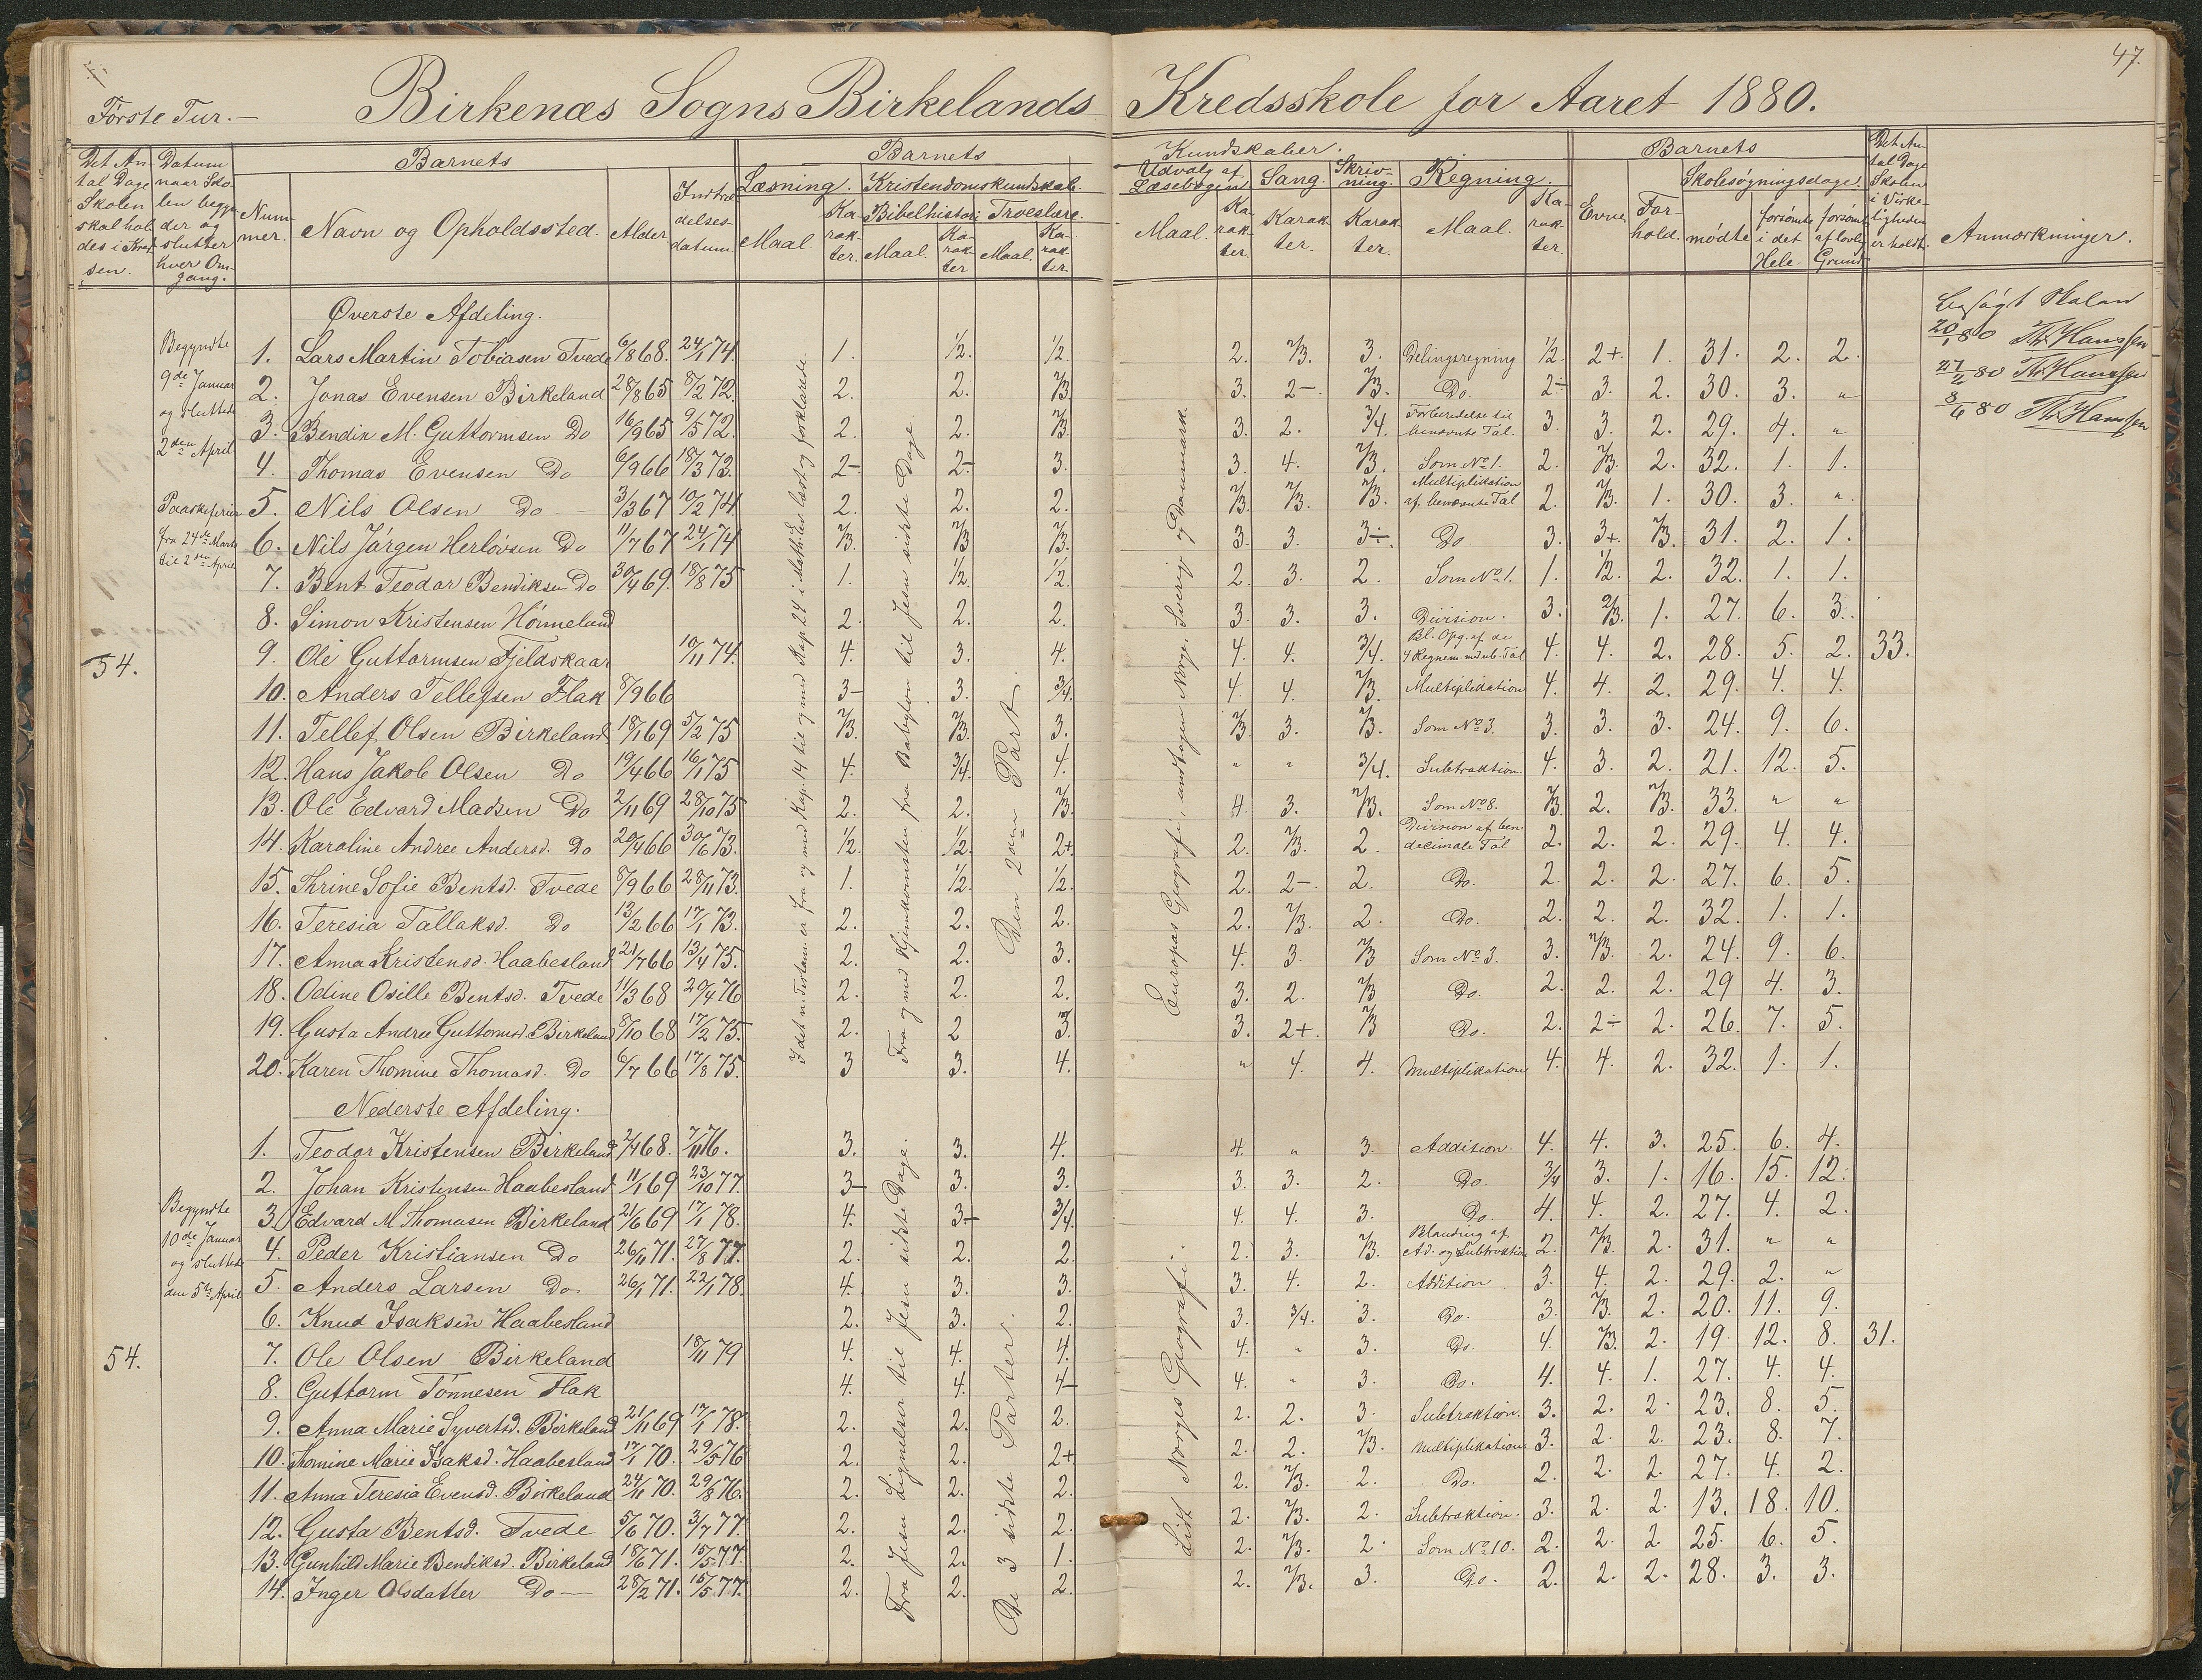 47.
Første Tur.— Birkenæs Sogns Birkelands Kredsskole for Aaret 1880.
Det Antal Dage Skolen skal holdes i Kredsen.
Datum naar Skolen begynder og slutter hver Omgang.
Barnets
Nummer. Navn og Opholdssted. Alder Indtrædelsesdatum.
Barnets Kundskaber.
Læsning. Maal Karakter.
Kristendomskundskab. Bibelhistorie Maal. Karakter Troeslære. Maal. Karakter.
Udvalg af Læsebogen Maal. Karakter.
Sang. Karakter.
Skrivning. Karakter.
Regning. Maal. Karakter.
Barnets
Evne. Forhold.
Skolesøgningsdage. mødte forsømte i det Hele forsømt af lovlig Grund
Det Antal Dage Skolen i Virkeligheden er holdt.
Anmærkninger.
Øverste Afdeling.
Begyndte 9de Januar og sluttede 2den April
Paaskeferie fra 24de Marts til 2den April
54.
I det n. Testam. er fra og med Kap. 14 til og med Kap. 24 i Math. Ev. læst og forklarede.
Fra og med Hjemkomsten fra Babylon til Jesu sidste Dage
Den 2den Part.
Europas Geografi, undtagen Norge, Sverig og Danmark.
Besøgt Skolen
20/1 80 Th. Hanssen
27/2 80 Th. Hanssen
8/6 80 Th. Hanssen
1. Lars Martin Tobiasen Tvede 6/8 68. 24/1 74. 1. 1/2. 1/2. 2. 2/3. 3. Delingsregning 1/2. 2+. 1. 31. 2. 2.
2. Jonas Evensen Birkeland 28/8 65 8/2 72. 2. 2. 2/3. 3. 2-. 2/3. Do. 2÷ 3. 2. 30. 3. "
3. Bendix M. Guttormsen Do 16/9 65 9/5 72. 2. 2. 2/3. 3. 2. 3/4. Forberedelse til benævnte Tal. 3. 3. 2. 29. 4. "
4. Thomas Evensen Do 6/9 66 18/3 73. 2-. 2-. 3. 3. 4. 2/3. Som No 1. 2. 2/3. 2. 32. 1. 1.
5. Nils Olsen Do — 3/3 67 10/2 74 2. 2. 2. 2/3. 2/3. 2/3. Multiplikation af benævnte Tal 2. 2/3. 1. 30. 3. "
6. Nils Jørgen Herlovsen Do 11/7 67 24/1 74 2/3. 2/3 2/3. 3. 3. 3÷. Do 3. 3+. 2/3. 31. 2. 1.
7. Bent Teodor Bendiksen Do 30/4 69. 18/8 75 1. 1/2. 1/2. 2. 3. 2. Som No 1. 1. 1/2. 2. 32. 1. 1.
8. Simon Kristensen Hønneland 2. 2. 2. 3. 3. 3. Division. 3. 2/3. 1. 27. 6. 3.
9. Ole Guttormsen Fjeldskaar 10/11 74. 4. 3. 4. 4. 4. 3/4. Bl. Opg. af de 4 Regnem. m. ub. Tal 4. 4. 2. 28. 5. 2. 33.
10. Anders Tellefsen Flak 8/9 66 3- 3. 3/4. 4. 4. 2/3. Multiplikation 4. 4. 2. 29. 4. 4.
11. Tellef Olsen Birkeland 18/1 69 5/2 75 2/3. 2/3. 3. 2/3. 3. 2/3. Som No 3. 3. 3. 3. 24. 9. 6.
12. Hans Jakob Olsen Do 19/4 66 16/1 75 4. 3/4. 4. " " 3/4. Subtraktion. 4. 3. 2. 21. 12. 5.
13. Ole Edvard Madsen Do 2/11 69 28/10 75 2. 2. 2/3. 4. 3. 2/3. Som No 8. 2/3. 2. 2/3. 33. " "
14. Karoline Andree Andersd. Do 20/4 66 30/6 73. 1/2. 1/2. 2+. 2. 2/3. 2. Division af ben. decimale Tal 2. 2. 2. 29. 4. 4.
15. Thrine Sofie Bentsd. Tvede 8/9 66 28/11 73. 1. 1/2. 1/2. 2. 2-. 2. Do. 2. 2. 2. 27. 6. 5.
16. Teresia Tallaksd. Do 13/2 66 17/1 73. 2. 2. 2. 2. 2/3. 2. Do. 2. 2. 2. 32. 1. 1.
17. Anna Kristensd. Haabesland 21/7 66 13/4 75. 2. 2. 3. 4. 3. 2/3 Som No 3. 3. 2/3. 2. 24. 9. 6.
18. Odine Osille Bentsd. Tvede 11/3 68 20/4 76 2. 2. 2. 3. 2. 2/3 Do. 2. 2. 2. 29 4. 3.
19. Gusta Andree Guttormsd. Birkeland 8/10 68 17/2 75. 2. 2 3. 3. 2+. 2/3 Do. 2. 2÷ 2. 26. 7. 5.
20. Karen Thomine Thomasd. Do 6/7 66 17/8 75. 3 3. 4. " 4. 4. Multiplikation 4. 4. 2. 32. 1. 1.
Nederste Afdeling.
Begyndte 10de Januar og sluttede den 5te April
54.
Fra Jesu Lignelser til Jesu sidste Dage.
De 3 sidste Parter.
Lidt Norges Geografi.
1. Teodor Kristensen Birkeland 2/4 68. 7/11 76. 3. 3. 4. 4. " 3. Addition. 4. 4. 3. 25. 6. 4.
2. Johan Kristensen Haabesland 11/1 69 23/10 77. 3- 3. 3. 3. 3. 2. Do. 3/4 3. 1. 16. 15. 12.
3. Edvard M. Thomasen Birkeland 21/6 69 17/1 78. 4. 3- 3/4. 4. 4. 3. Do. 4. 4. 2. 27. 4. 2.
4. Peder Kristiansen Do 26/11 71. 27/8 77. 2. 2. 2. 2. 3. 2/3. Blanding af Ad. og Subtraktion 2. 2/3. 2. 31. " "
5. Anders Larsen Do. 26/1 71. 22/1 78. 4. 3. 3. 3. 4. 2. Addition 3. 4. 2. 29. 2. "
6. Knud Isaksen Haabesland 2. 3. 2. 3. 3/4. 3. Do. 3. 2/3. 2. 20. 11. 9.
7. Ole Olsen Birkeland 18/11 79 4. 4. 4. 4. " 3. Do. 4. 2/3. 2. 19. 12. 8. 31.
8. Guttorm Tønnesen Flak 4. 4. 4- 4. " 3. Do. 4. 4. 1. 27. 4. 4.
9. Anna Marie Syvertsd. Birkeland 21/11 69 17/1 78. 2. 2. 2. 2. 2. 3. Subtraktion. 3. 2. 2. 23. 8. 5.
10. Thomine Marie Isaksd. Haabesland 17/1 70. 29/5 76 2. 2. 2+ 2. 2. 2/3. Multiplikation 3. 2. 2. 23. 8. 7.
11. Anna Teresia Evensd. Birkeland 24/11 70. 29/8 76. 2. 2. 2. 2. 2/3. 2. Do. 2. 2. 2. 27. 4. 2.
12. Gusta Bentsd. Tvede 5/6 70. 3/7 77. 2. 2. 2. 2. 2/3. 2. Subtraktion. 3. 2. 2. 13. 18. 10.
13. Gunhild Marie Bendiksd. Birkeland 18/6 71. 15/5 77. 2. 2. 1. 2. 2/3. 2. Som No 10. 2. 2. 2 25. 6. 5.
14. Inger Olsdatter Do — 28/2 71. 15/5 77. 2. 2. 2. 2. 2/3. 3. Do. 2. 2. 2. 28. 3. 3.